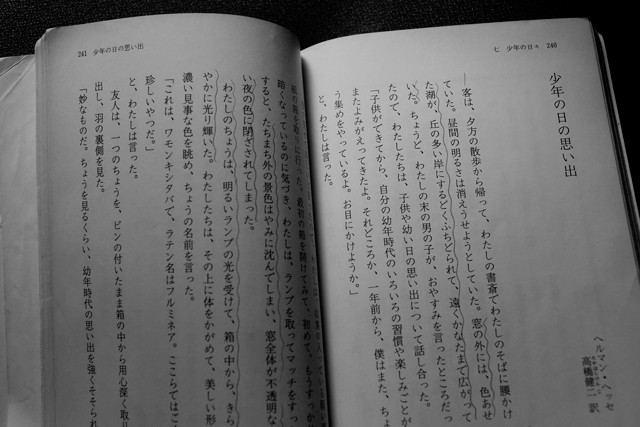 七 少年の日々 240
少年の日の思い出
ヘルマン・ヘッセ
高橋健二 訳
──客は、夕方の散歩から帰って、わたしの書斎でわたしのそばに腰かけ
ていた。昼間の明るさは消えうせようとしていた。窓の外には、色あせ
た湖が、丘の多い岸にするどくふちどられて、遠くかなたまで広がって
いた。ちょうど、わたしの末の男の子が、おやすみを言ったところだっ
たので、わたしたちは、子供や幼い日の思い出について話し合った。
「子供ができてから、自分の幼年時代のいろいろの習慣や楽しみごとが
またよみがえってきたよ。それどころか、一年前から、僕はまた、ちょ
う集めをやっているよ。お目にかけようか。」
と、わたしは言った。
241 少年の日の思い出
行った。最初の箱を開けてみて、初めて、もうすっか
暗くなっているのに気づき、わたしは、ランプを取ってマッチをすっ
すると、たちまち外の景色はやみに沈んでしまい、窓全体が不透明な
い夜の色に閉ざされてしまった。
わたしのちょうは、明るいランプの光を受けて、箱の中から、きら
やかに光り輝いた。わたしたちは、その上に体をかがめて、美しい形
濃い見事な色を眺め、ちょうの名前を言った。
「これは、ワモンキシタバで、ラテン名はフルミネア。ここらではご
珍しいやつだ。」
と、わたしは言った。
友人は、一つのちょうを、ピンの付いたまま箱の中から用心深く取り
出し、羽の裏側を見た。
「妙なものだ。ちょうを見るくらい、幼年時代の思い出を強くそそられ